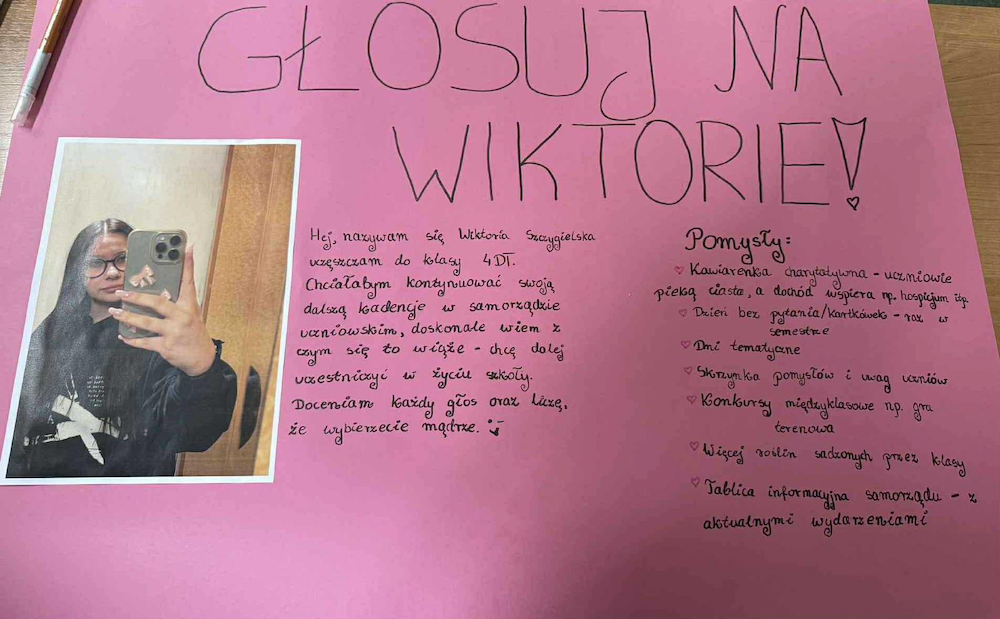 GŁOSUJ NA
WIKTORIE!
Hej, nazywam się Wiktoria Szczygielska
uczęszczam do klasy 4DT.
Chciałabym kontynuować swoją
dalszą kadencje w samorządzie
uczniowskim, doskonale wiem z
czym się to wiąże - chcę dalej
uczestniczyć w życiu szkoły.
Doceniam każdy głos oraz liczę,
że wybierzecie mądrze.
Pomysły:
Kawiarenka charytatywna - uczniowie
pieką ciasta, a dochód wspiera np. hospicjum itp.
Dzień bez pytania/kartkówek - raz w
semestrze
Dni tematyczne
Skrzynka pomysłów i uwag uczniów
Konkursy międzyklasowe np. gra
terenowa
Więcej roślin sadzonych przez klasy
Tablica informacyjna samorządu - z
aktualnymi wydarzeniami